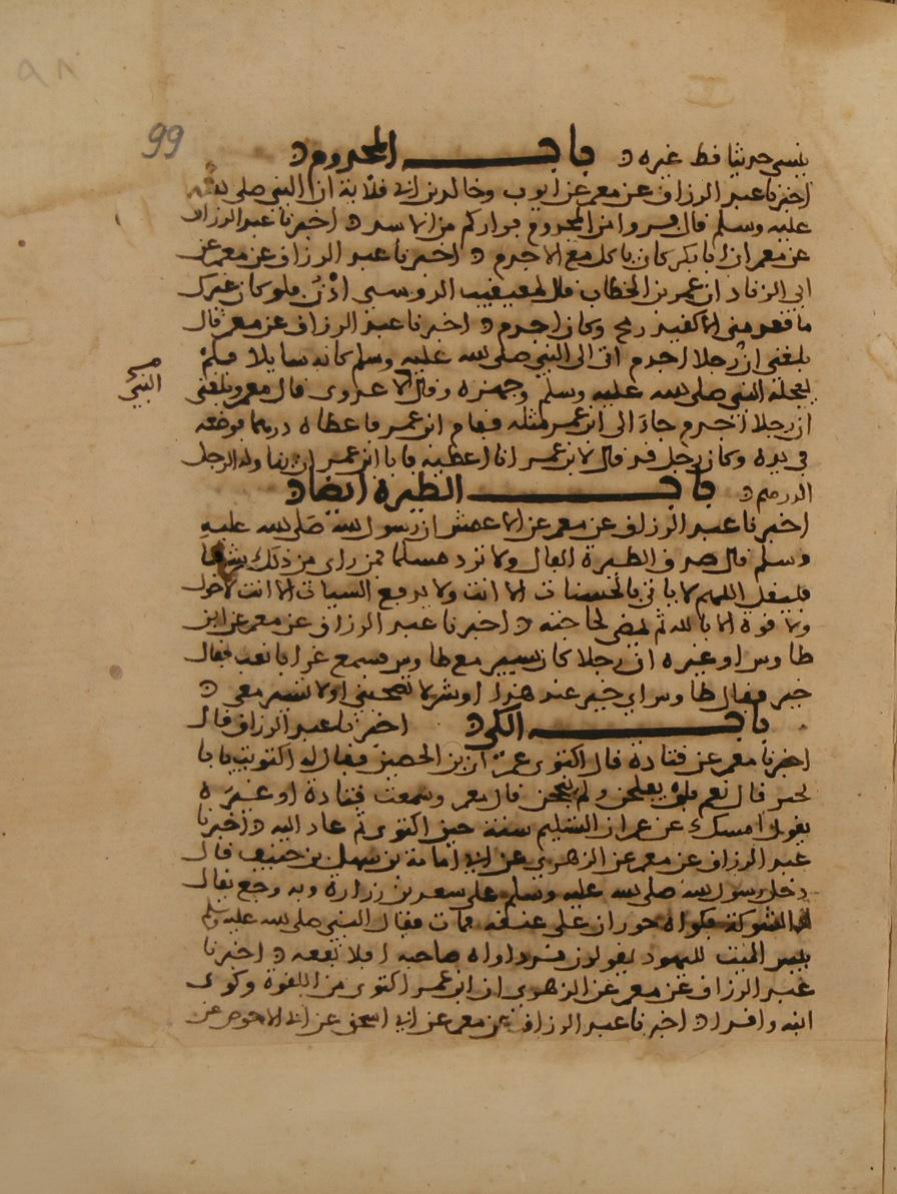 99
ينسى حديثا قط غيره ه باب المجذوم ه
اخبرنا عبد الرزاق عن معمر عن ايوب وخالد بن ابي قلابة ان النبي صلى الله
عليه وسلم قال فروا من المجذوم فراركم من الاسد ه اخبرنا عبد الرزاق
عن معمر ان ابا بكر كان ياكل مع الاجذم ه اخبرنا عبد الرزاق عن معمر عن
ابي الزناد ان عمر بن الخطاب قال لمعيقيب الدوسي اذن فلو كان غيرك
ما قعد مني الا كقيد رمح وكان اجذم ه اخبرنا عبد الرزاق عن معمر قال
بلغني ان رجلا اجذم اتى الى النبي صلى الله عليه وسلم كانه سايلا فلم
يعجله النبي صلى الله عليه وسلم وجهزه وقال لا عدوى قال معمر وبلغني
النبي
ان رجلا اجذم جاء الى ابن عمر فسله فقام ابن عمر فاعطاه درهما فوضعه
في يده وكان رجل قد قال لابن عمر انا اعطيه فابا ابن عمر ان يناوله الرجل
الدرهم ه باب الطيرة ايضا ه
اخبرنا عبد الرزاق عن معمر عن الاعمش ان رسول الله صلى الله عليه
وسلم قال صدق الطيرة الفال ولا ترد مسلما فمن راى من ذلك شيا
فليقل اللهم لا ياتي بالحسنات الا انت ولا يدفع السيات الا انت لا حول
ولا قوة الا بالله ثم ليمضي لحاجته ه اخبرنا عبد الرزاق عن معمر عن ابن
طاوس او غيره ان رجلا كان يسير مع طاوس فسمع غرابا نعب فقال
خير فقال طاوس اي خير عند هذا او شر لا تصحبني او لا تسير معي ه
باب الكي ه اخبرنا عبد الرزاق قال
اخبرنا معمر عن قتادة قال اكتوى عمران بن الحصين فقال له اكتويت يا با
نجيد قال نعم فلم يفلحن ولم ينجحن قال معمر وسمعت قتادة او غيره
يقول امسك عن عمران التسليم سنة حين اكتوى ثم عاد اليه ه اخبرنا
عبد الرزاق عن معمر عن الزهري عن ابي امامة بن سهل بن حنيف قال
دخل رسول الله صلى الله عليه وسلم على سعد بن زرارة وبه وجع يقال
له الشوكة فكواه حوران على عنقه فمات فقال النبي صلى الله عليه وسلم
بيس الميت لليهود يقولون قد داواه صاحبه افلا نفعه ه اخبرنا
عبد الرزاق عن معمر عن الزهري ان ابن عمر اكتوى من اللقوة وكوى
ابنه واقدا ه اخبرنا عبد الرزاق عن معمر عن ابي اسحق عن ابي الاحوص عن